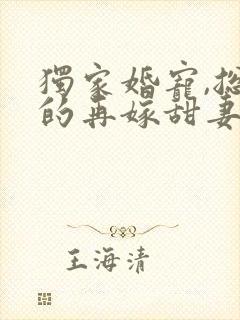 獨家婚寵,總
的再嫁甜妻
王海清